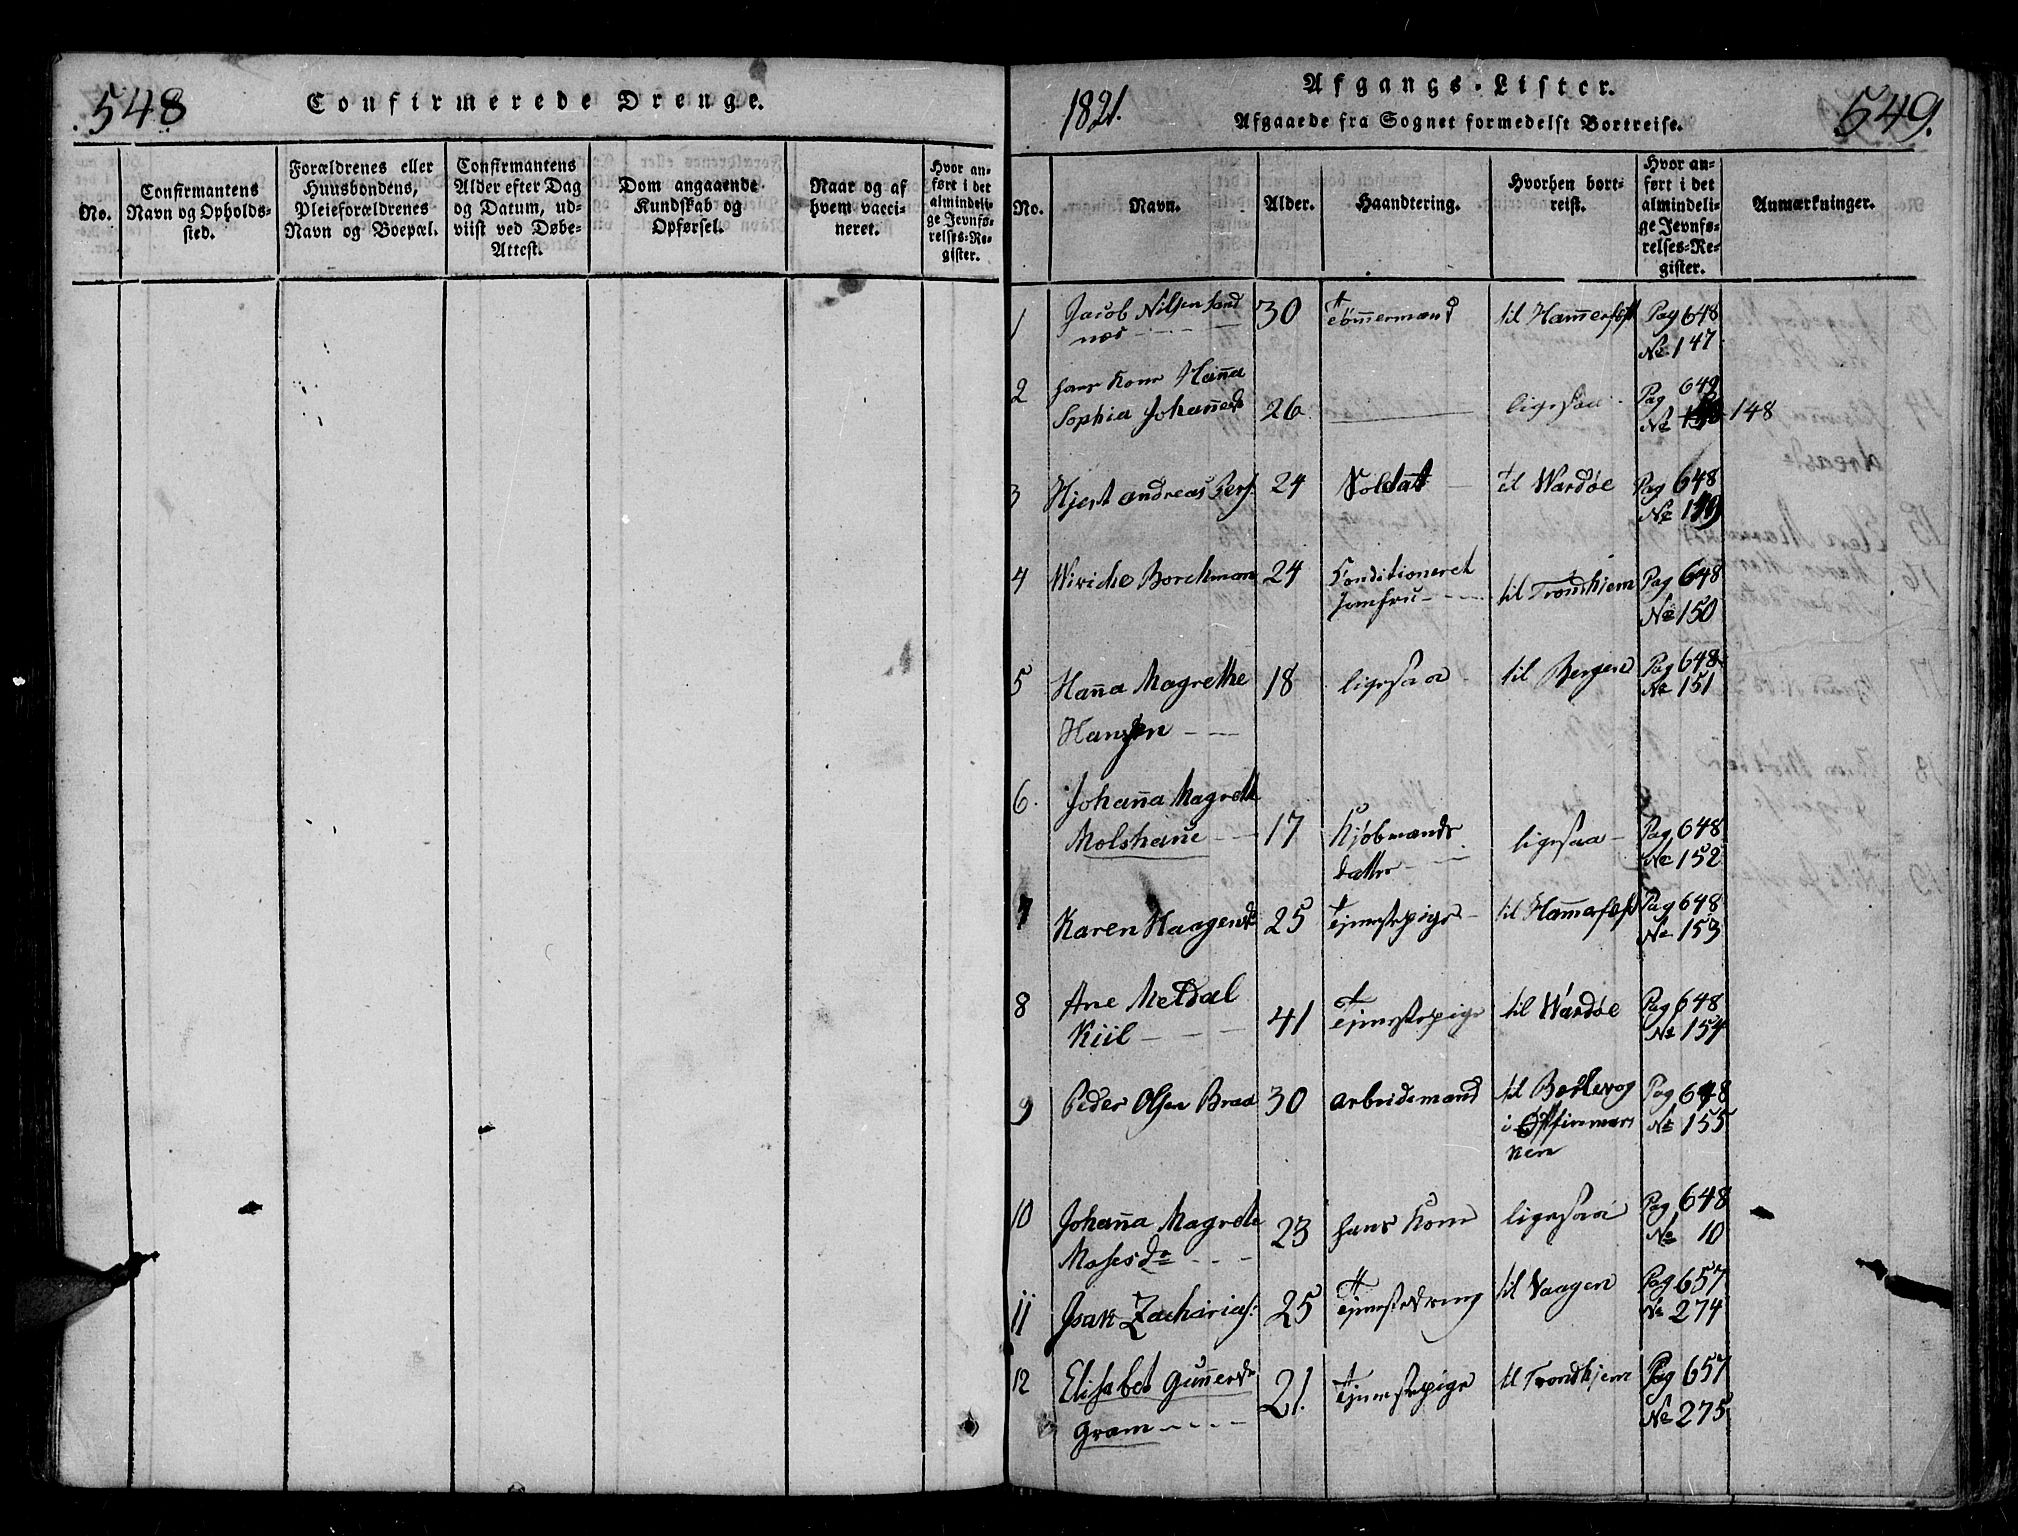 548
Confirmerede Drenge.
No.
Confirmantens
Navn og Opholds-
sted.
Forældrenes eller
Huusbondens,
Pleieforældrenes
Navn og Boepæl.
Confirmantens
Alder efter Dag
og Datum, ud-
viist ved Døbe-
Attest.
Dom angaaende
Kundskab og
Opførsel.
Naar og af
hvem vacci-
neret.
Hvor an-
ført i det
almindeli-
ge Jevnfø-
relses-Re-
gister.
1821.
Afgangs-Lister.
Afgaaede fra Sognet formedelst Bortreise.
549.
No.
Navn.
Alder.
Haandtering.
Hvorhen bort-
reist.
Hvor an-
ført i det
almindeli-
ge Jevnfø-
relses-Re-
gister.
Anmærkninger.
1 Jacob Nilsen Sand 30 Tømermand til Hamerfest Pag 648
næs No 147
2 hans Kone Hana Pag 648
Sophia Johaneds 26 ligesaa No 148
3 Hjert Andreas Pers. 24 Soldat til Wardøe Pag 648
No 149
4 Wiviche Borchman 24 Conditioneret til Trondhiem Pag 648
Jomfru No 150
5 Hana Magrethe 18 ligesaa til Bergen Pag 648
Hansen No 151
6. Johana Magreth
Molshaue 17 Kjøbmands ligesaa Pag 648
datter No 152
7 Karen Haagensd 25 Tjenestepige til Hamerfest Pag 648
No 153
8 Ane Metdal 41 Tjenestepige til Wardøe Pag 648
Kiil No 154
9 Peder Olsen Braa 30 arbeidsmand til Berlevog Pag 648
i Østfinmar No 155
ken
10 Johana Magrete 23 hans Kone ligesaa Pag 648
Moses Dr No 10
11 Isak Zacharias. 25 Tjenestedreng til Vaagen Pag 657
No 274
12 Elisabet Guners 21. Tjenestepige til Trondhjem Pag 657
Gram No 275